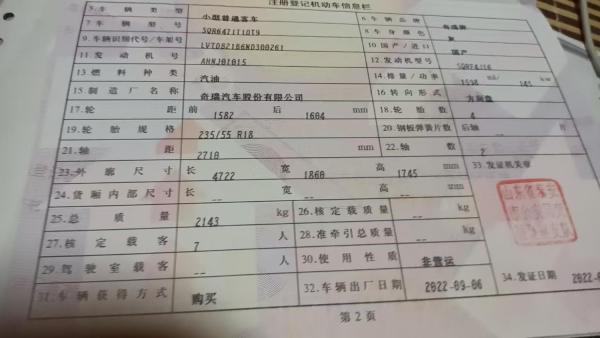 注册登记机动车信息栏
5.车辆类型 小型普通客车 6.车辆品牌
7.车辆型号 SQR6471T1DT9 8.车身颜色 灰
9.车辆识别代号/车架号 10.国产/进口 国产
11.发动机号 12.发动机型号
13.燃料种类 汽油 14.排量/功率 1598 ml/ 145 kw
15.制造厂名称 奇瑞汽车股份有限公司 16.转向形式 方向盘
17.轮距 前 1582 后 1604 mm 18.轮胎数 4
19.轮胎规格 235/55 R18 20.钢板弹簧片数 后轴 -- 片
21.轴距 2710 mm 22.轴数 2
23.外廓尺寸 长 4722 宽 1860 高 1745 mm 33.发证机关章
24.货厢内部尺寸 长 -- 宽 -- 高 -- mm
25.总质量 2143 kg 26.核定载质量 -- kg
27.核定载客 7 人 28.准牵引总质量 -- kg
29.驾驶室载客 -- 人 30.使用性质 非营运
31.车辆获得方式 购买 32.车辆出厂日期 2022-09-06 34.发证日期 2022-
第2页